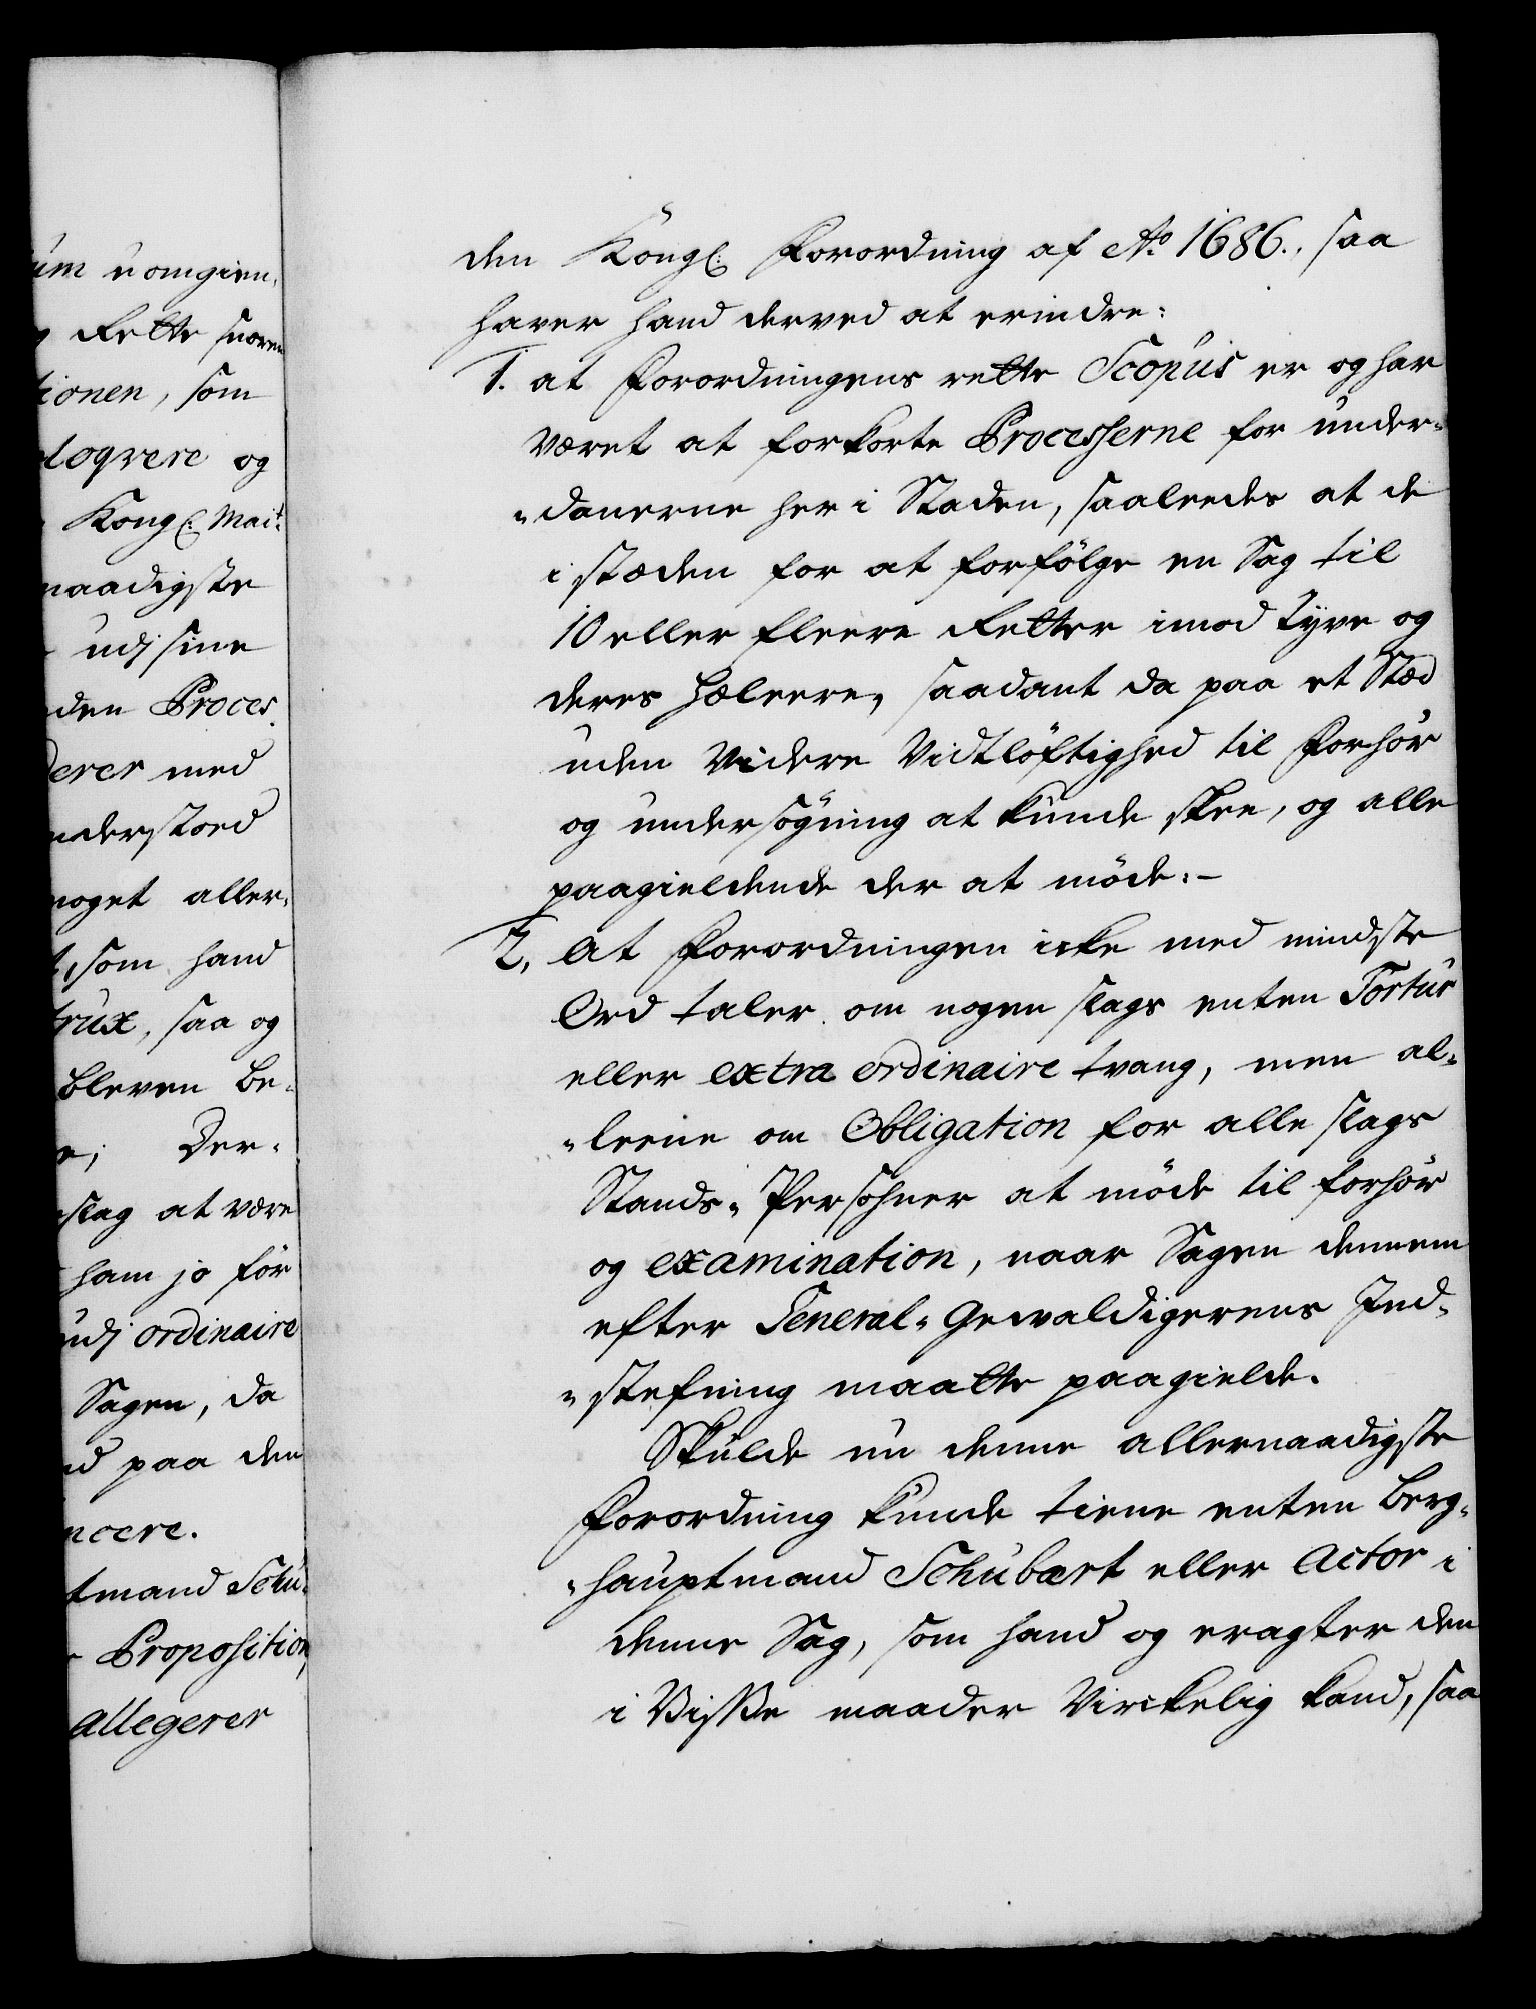 um uomgien-
Rette snoren
tionen, som
loqvere og
Kongl: Mait:
naadigste
udj sine
den Proces
erer med
understoed
noget aller-
som hand
trux, saa og
bleven be-
Der-
slag at være
ham jo för
udj ordinaire
Sagen, da
paa den
ncere.
tmand Schu-
Proposition,
allegerer
den Kongl: Forordning af Ao 1686., saa
haver hand derved at erindre:
1. at Forordningens rette Scopus er og har
været at forkorte Processerne for under-
-danerne her i Staden, saaleedes at de
i stæden for at forfölge en Sag til
10 eller fleere Retter imod Tyve og
deres Hæleere, saadant da paa et Stæd
uden Videre Vidtlöftighed til Forhör
og undersögning at kunde skee, og alle
paagieldende der at möde.-
2. At Forordningen icke med mindste
Ord taler om nogen slags enten Tortur
eller extra ordinaire tvang, men al-
-leene om Obligation for alle slags
Stands-Persohner at möde til forhör
og examination, naar Sagen dennem
efter General-Gewaldigerens Ind-
-stefning maatte paagielde.
Skulde nu denne allernaadigste
Forordning kunde tiene enten Berg-
-hauptmand Schubært eller Actor i
denne Sag, som hand og eragter den
i Visse maader Virckelig kand, saa